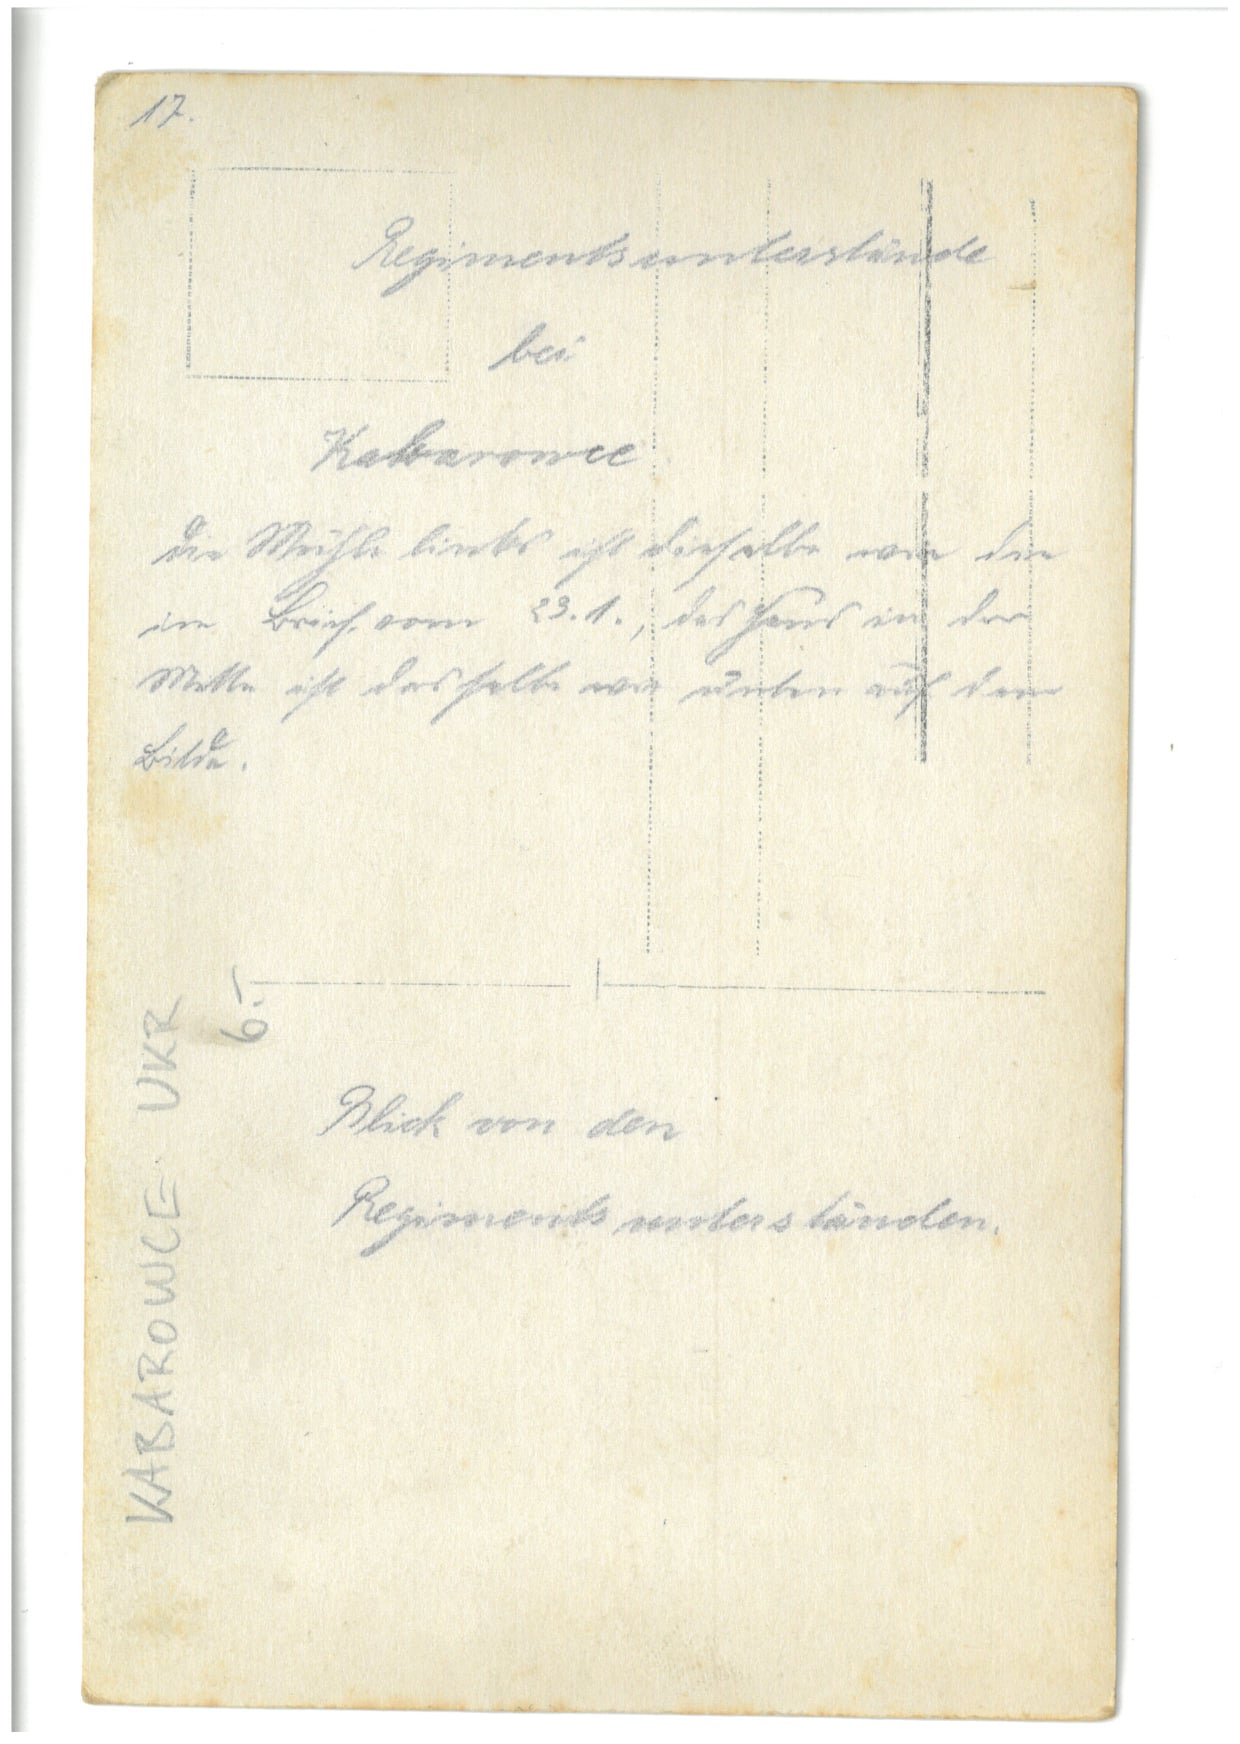 17.
Regimentsunterstände
bei
Kabarowce
Die Mühle links ist dieselbe wie die
im Brief vom 23.1., das Haus in der
Mitte ist dasselbe wie unten auf dem
Bilde.
6.-
KABAROWCE UKR
Blick von den
Regimentsunterständen.